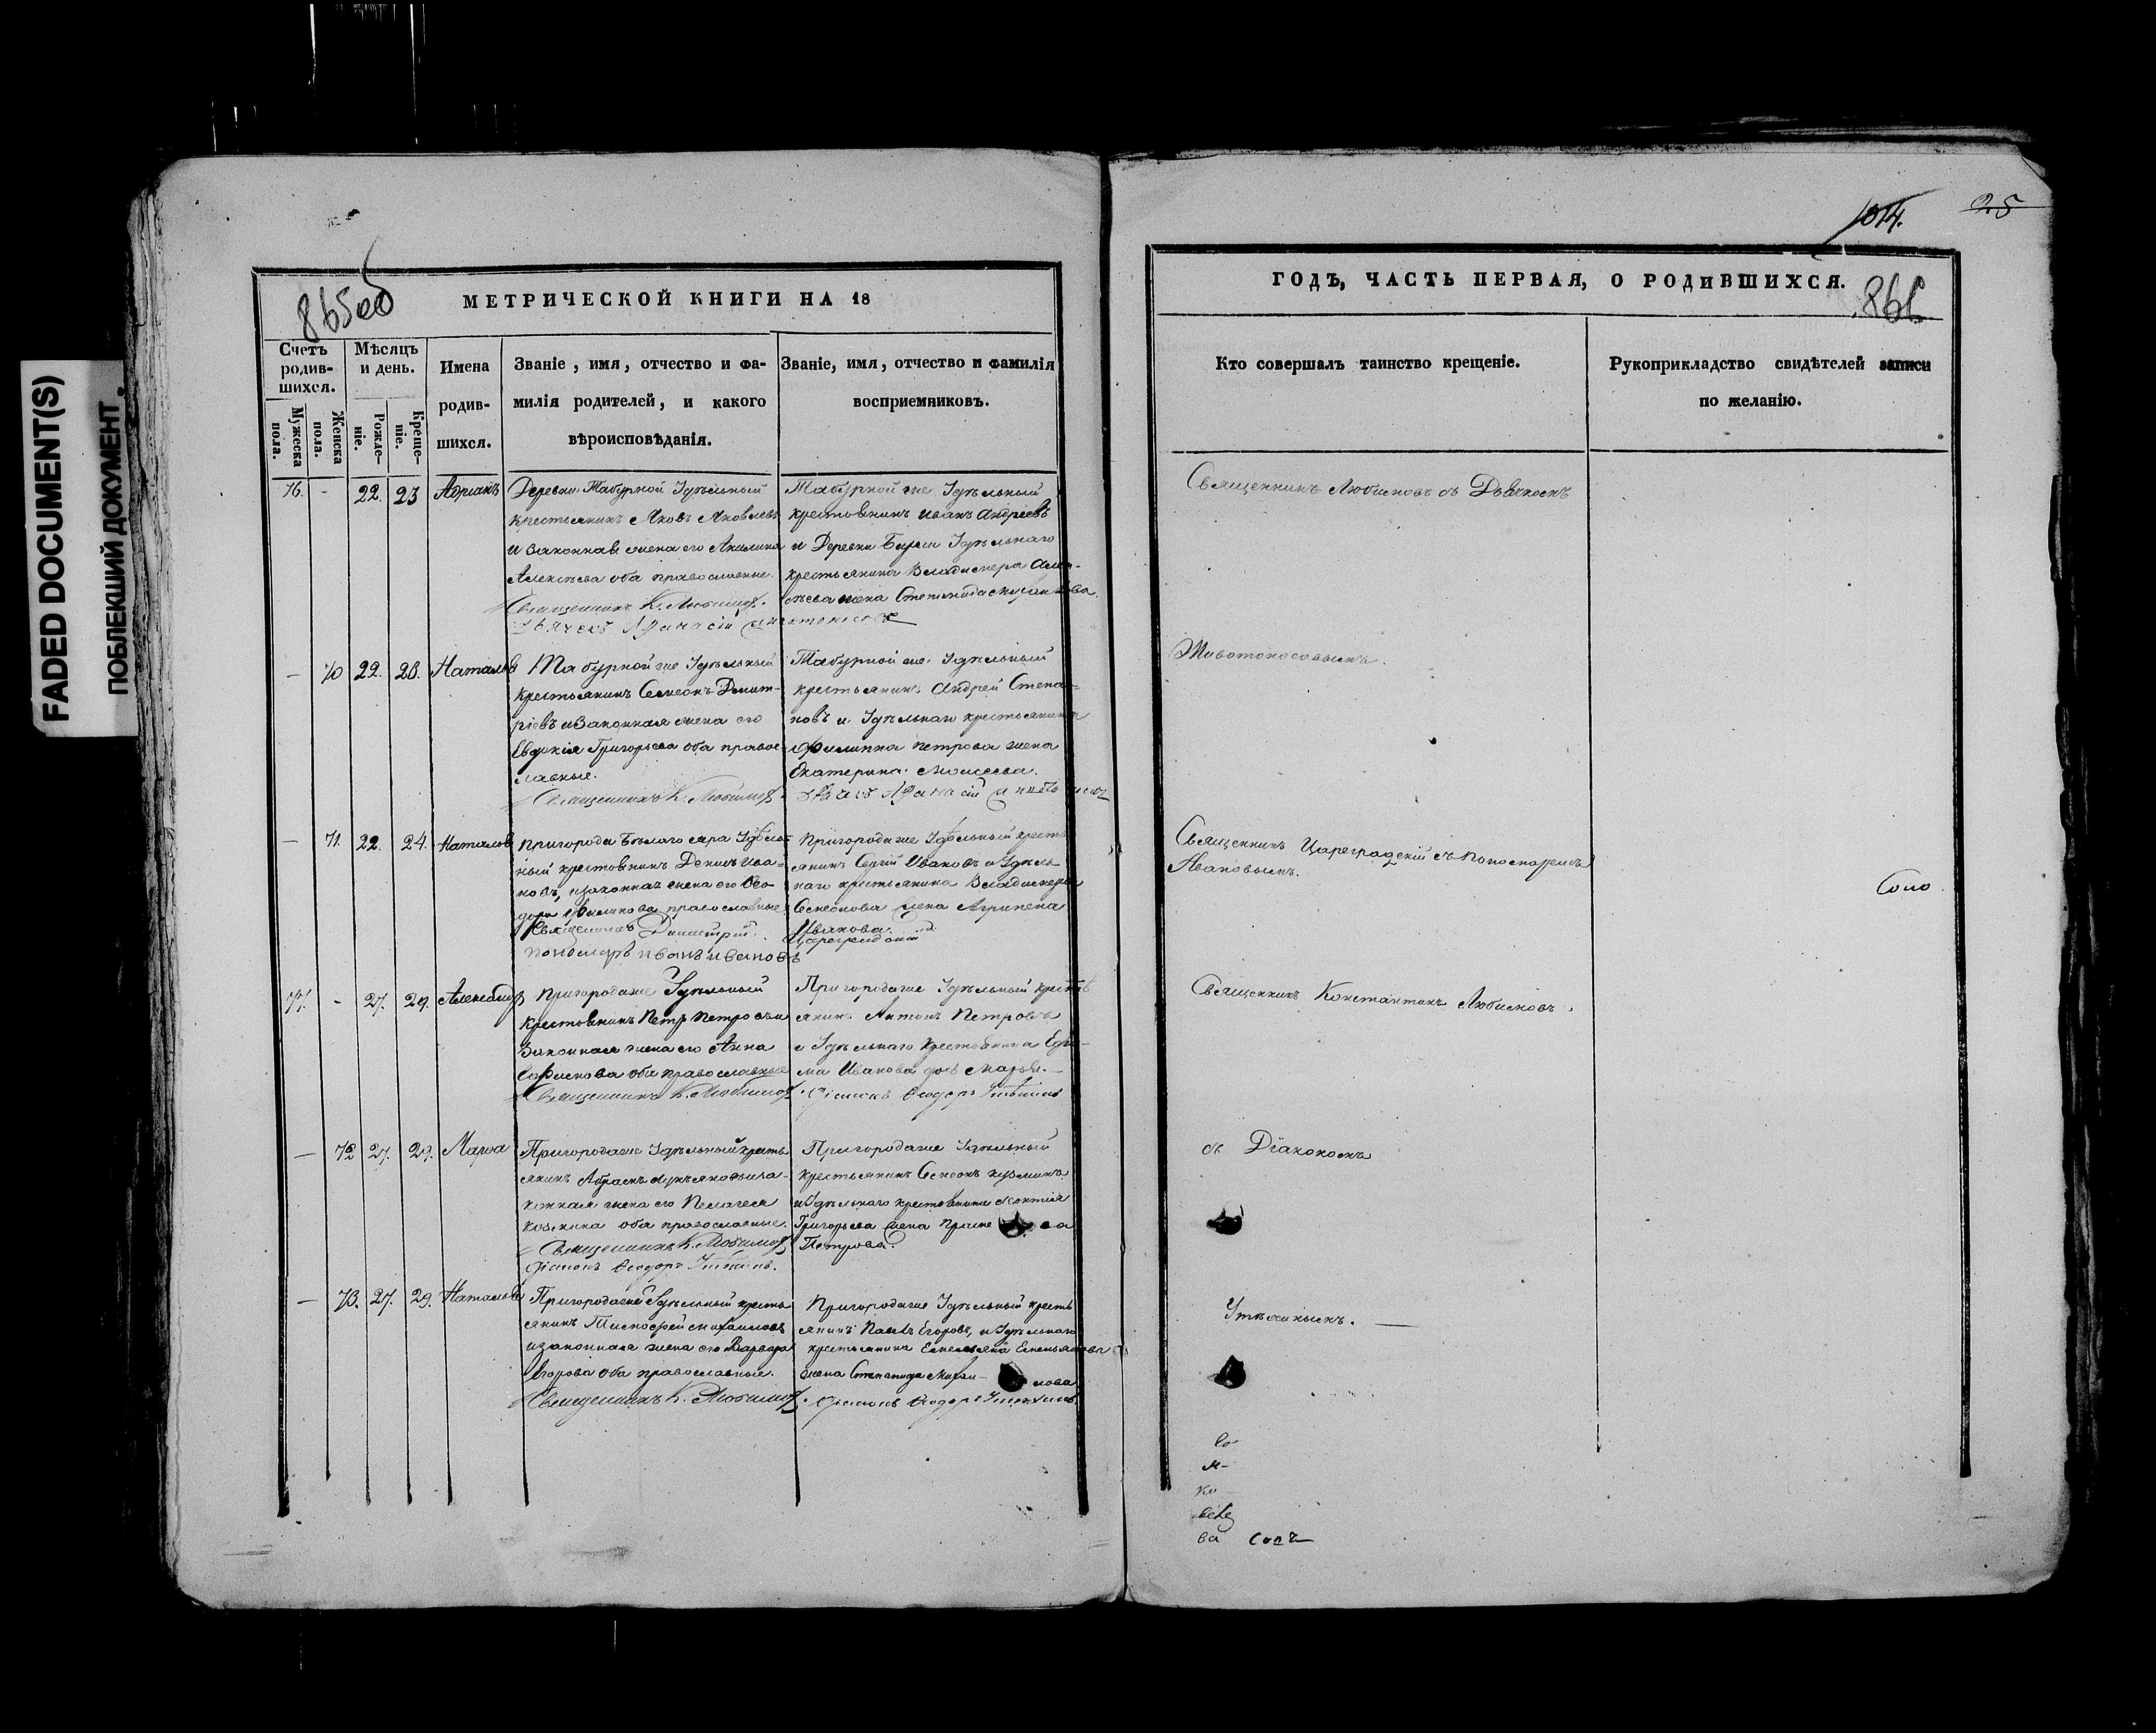 FADED DOCUMENT(S)
ПОБЛЕКШИЙ ДОКУМЕНТ
25
1014.
865об
МЕТРИЧЕСКОЙ КНИГИ НА 18
Счетъ родив-шихся.
Мѣсяцъ и день.
Имена родив-шихся.
Званіе, имя, отчество и фа-
милія родителей, и какого
вѣроисповѣданія.
Званіе, имя, отчество и фамилія
восприемниковъ.
Мужеска пола.
Женска пола.
Рожде-ніе.
Креще-ніе.
76. - 22. 23 Адріанъ
Деревни Табурной Удѣльный
крестьянинъ Яковъ Яковлевъ
и законная жена его Акилина
Алексѣева оба православные.
Священникъ К. Любимов.
Табурной же Удѣльный
крестьянинъ Иванъ Андреевъ
и Деревни Удѣльнаго
крестьянина Владимера Алек-
сѣева жена Степанида
— 70 22. 23. Наталья
Табурной же Удѣльный
крестьянинъ Семеонъ Дмит-
ріевъ и законная жена его
Евдокія Григорьева оба право-
славные.
Священникъ К. Любимов.
Табурной же Удѣльный
крестьянинъ Андрей Степа-
новъ и Удѣльнаго крестьянина
Филиппа Петрова жена
Екатерина Моисеева.
— 71. 22. 24. Наталья
Пригорода Бѣлаго Яра Удѣль-
ный крестьянинъ Денисъ Ива-
новъ, и законная жена его Ѳео-
дора Филипова православные
Священникъ Димитрій Цареградскій
пономарь Иванъ Ивановъ
Пригорода же Удѣльный кресть
янинъ Сергій Ивановъ и Удѣль
наго крестьянина Владимера
Семеонова жена Агрипена
Иванова.
77. - 27. 29. Александръ
Пригорода же Удѣльный
крестьянинъ Петръ Петровъ и
законная жена его Анна
Ефимова оба православные
Священникъ К. Любимов.
Пригорода же Удѣльный кресть
янинъ Антонъ Петровъ
и Удѣльнаго крестьянина
Иванова дочь Марья.
— 72 27. 29. Марѳа
Пригорода же Удѣльный кресть
янинъ Абрамъ Лукьяновъ и за-
конная жена его Пелагея
Козмина оба православные.
Священникъ К. Любимов
Пригорода же Удѣльный
крестьянинъ Семеонъ Кузминъ
и Удѣльнаго крестьянина Леонтія
Григорьева жена
Петрова.
— 73. 27. 29. Наталья
Пригорода же Удѣльный кресть
янинъ Тимофей Михаиловъ
и законная жена его Варвара
Егорова оба православные.
Священникъ К. Любимов.
Пригорода же Удѣльный кресть
янинъ Павлъ Егоровъ, и Удѣльнаго
крестьянина Емельяна Емельянова
жена Степанида Михаи- лова
ГОДЪ, ЧАСТЬ ПЕРВАЯ, О РОДИВШИХСЯ.
Кто совершалъ таинство крещеніе.
Рукоприкладство свидѣтелей записи
по желанію.
Священникъ Любимовъ съ Дьячкомъ
Животоносовымъ.
Священникъ Цареградскій съ Пономаремъ
Ивановымъ.
Священникъ Константинъ Любимовъ.
съ Діакономъ
Утѣхинымъ.